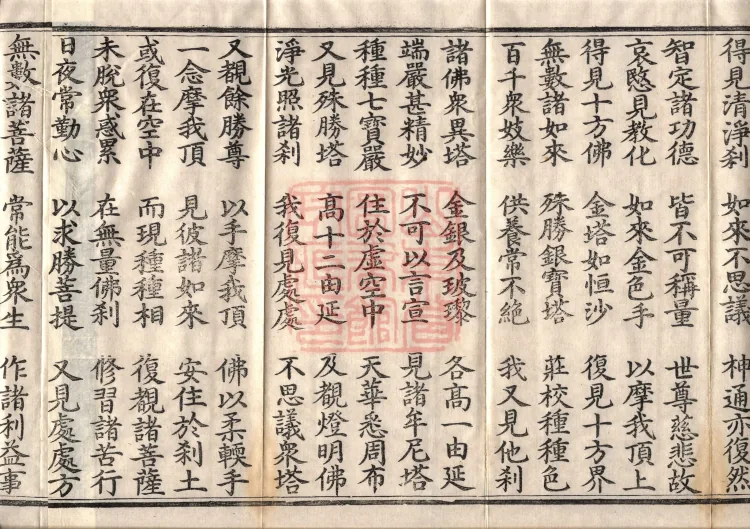 得見清淨刹 如來不思議 神通亦復然
智定諸功德 皆不可稱量 世尊慈悲故
哀愍見教化 如來金色手 以摩我頂上
得見十方佛 金塔如恒沙 復見十方界
無數諸如來 殊勝銀寶塔 莊校種種色
百千衆妓樂 供養常不絶 我又見他刹
諸佛衆異塔 金銀及玻瓈 各高一由延
端嚴甚精妙 不可以言宣 見諸牟尼塔
種種七寶嚴 住於虛空中 天華悉周布
又見殊勝塔 高十二由延 及覩燈明佛
淨光照諸刹 我復見處處 不思議衆塔
又覩餘勝尊 以手摩我頂 佛以柔輭手
一念摩我頂 見彼諸如來 安住於刹土
或復在空中 而現種種相 復觀諸菩薩
未脫衆惑累 在無量佛刹 修習諸苦行
日夜常勤心 以求勝菩提 又見處處方
無數諸菩薩 常能爲衆生 作諸利益事